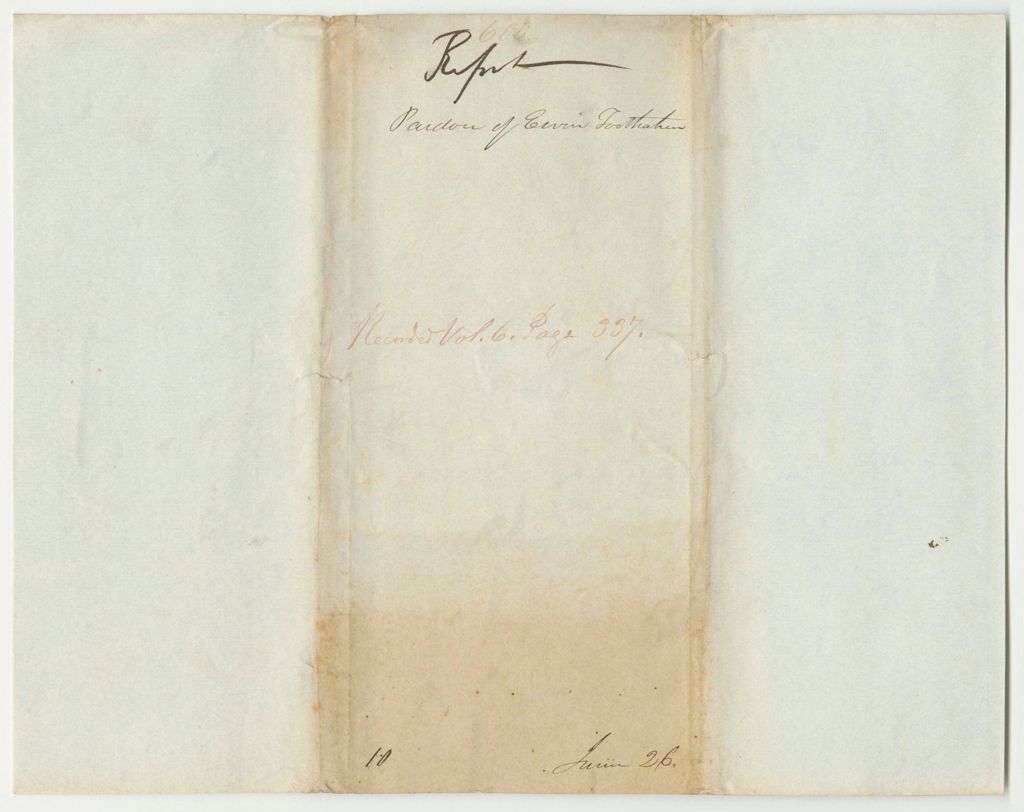 Report
Pardon of Ervin Toothaker
Recorded Vol. 6. Page 337.
10
June 26.